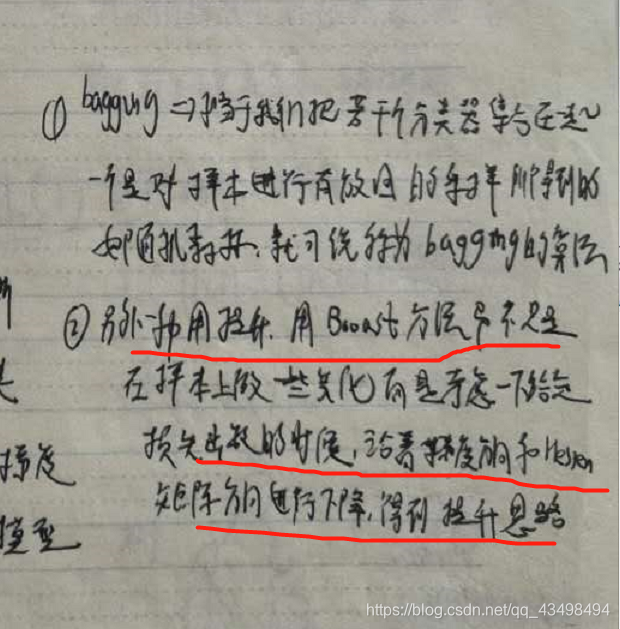 ① bagging ⇒ 相当于我们把若干个分类器集合在起
一个是对样本进行有放回的采样所得到的
随机森林,就可统称为bagging的算法
② 另外一种用提升,用Boost方法,不是
在样本上做一些变化而是考虑一下给定
损失函数的时候,沿着梯度方向和Hessian
矩阵方向进行下降,得到提升思路
梯度
模型
https://blog.csdn.net/qq_43498494